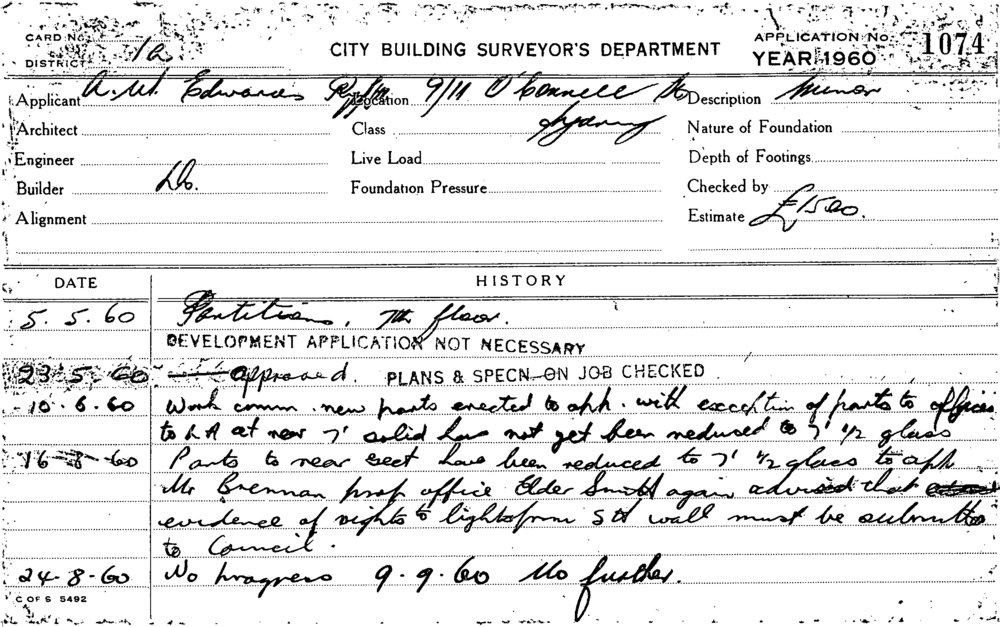 CARD No.
DISTRICT 1a.
CITY BUILDING SURVEYOR'S DEPARTMENT
APPLICATION No. 1074
YEAR 1960
Applicant A. W. Edwards Location 9/11 O'Connell St Description Minor
Architect Class Sydney Nature of Foundation
Engineer Live Load Depth of Footings
Builder Do. Foundation Pressure Checked by
Alignment Estimate £1500.
DATE HISTORY
5. 5. 60 Partitions, 7th floor.
DEVELOPMENT APPLICATION NOT NECESSARY
23-5-60 approved. PLANS & SPECN. ON JOB CHECKED
10-6-60 Work comm. new parts erected to aph. with exception of parts to offices
to LA at rear 7' solid have not yet been reduced to 7' 1/2 glass
16-8-60 Parts to rear sect have been reduced to 7' 1/2 glass to aph
Mr Brennan prop office Elder Smith again advised that
evidence of rights to lights from Sth wall must be submitted
to Council.
24-8-60 No progress 9-9-60 No further.
C OF S 5492